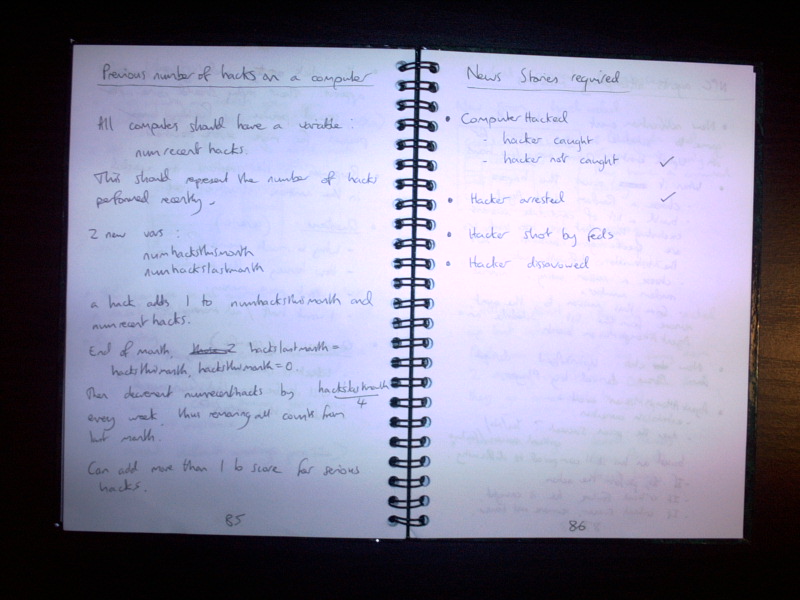 Previous number of hacks on a computer
All computers should have a variable:
numrecenthacks.
This should represent the number of hacks
performed recently.
2 new vars:
numhacksthismonth
numhackslastmonth
a hack adds 1 to numhacksthismonth and
numrecenthacks.
End of month, hackslastmonth =
hacksthismonth, hacksthismonth = 0.
Then decrement numrecenthacks by hackslastmonth
4
every week, thus removing all counts from
last month.
Can add more than 1 to score for serious
hacks.
85
News Stories required
• Computer Hacked
- hacker caught
- hacker not caught ✓
• Hacker arrested ✓
• Hacker shot by feds
• Hacker disavowed
86